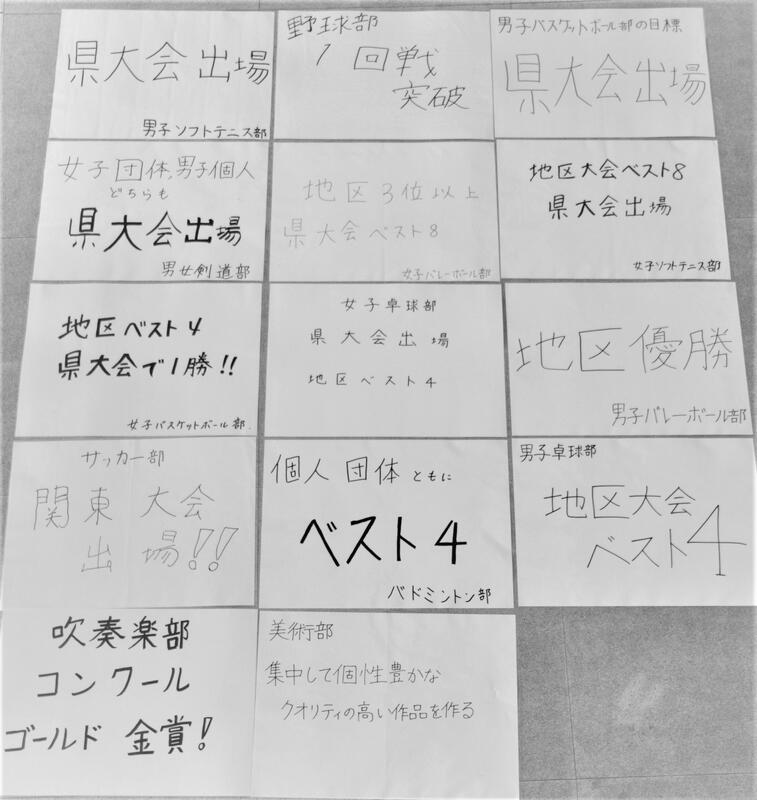 県大会出場
男子ソフトテニス部
野球部
1回戦
突破
男子バスケットボール部の目標
県大会出場
女子団体,男子個人
どちらも
県大会出場
男女剣道部
地区3位以上
県大会ベスト8
女子バレーボール部
地区大会ベスト8
県大会出場
女子ソフトテニス部
地区ベスト4
県大会で1勝!!
女子バスケットボール部.
女子卓球部
県大会出場
地区ベスト4
地区優勝
男子バレーボール部
サッカー部
関東大会
出場!!
個人団体ともに
ベスト4
バドミントン部
男子卓球部
地区大会
ベスト4
吹奏楽部
コンクール
ゴールド金賞!
美術部
集中して個性豊かな
クオリティの高い作品を作る